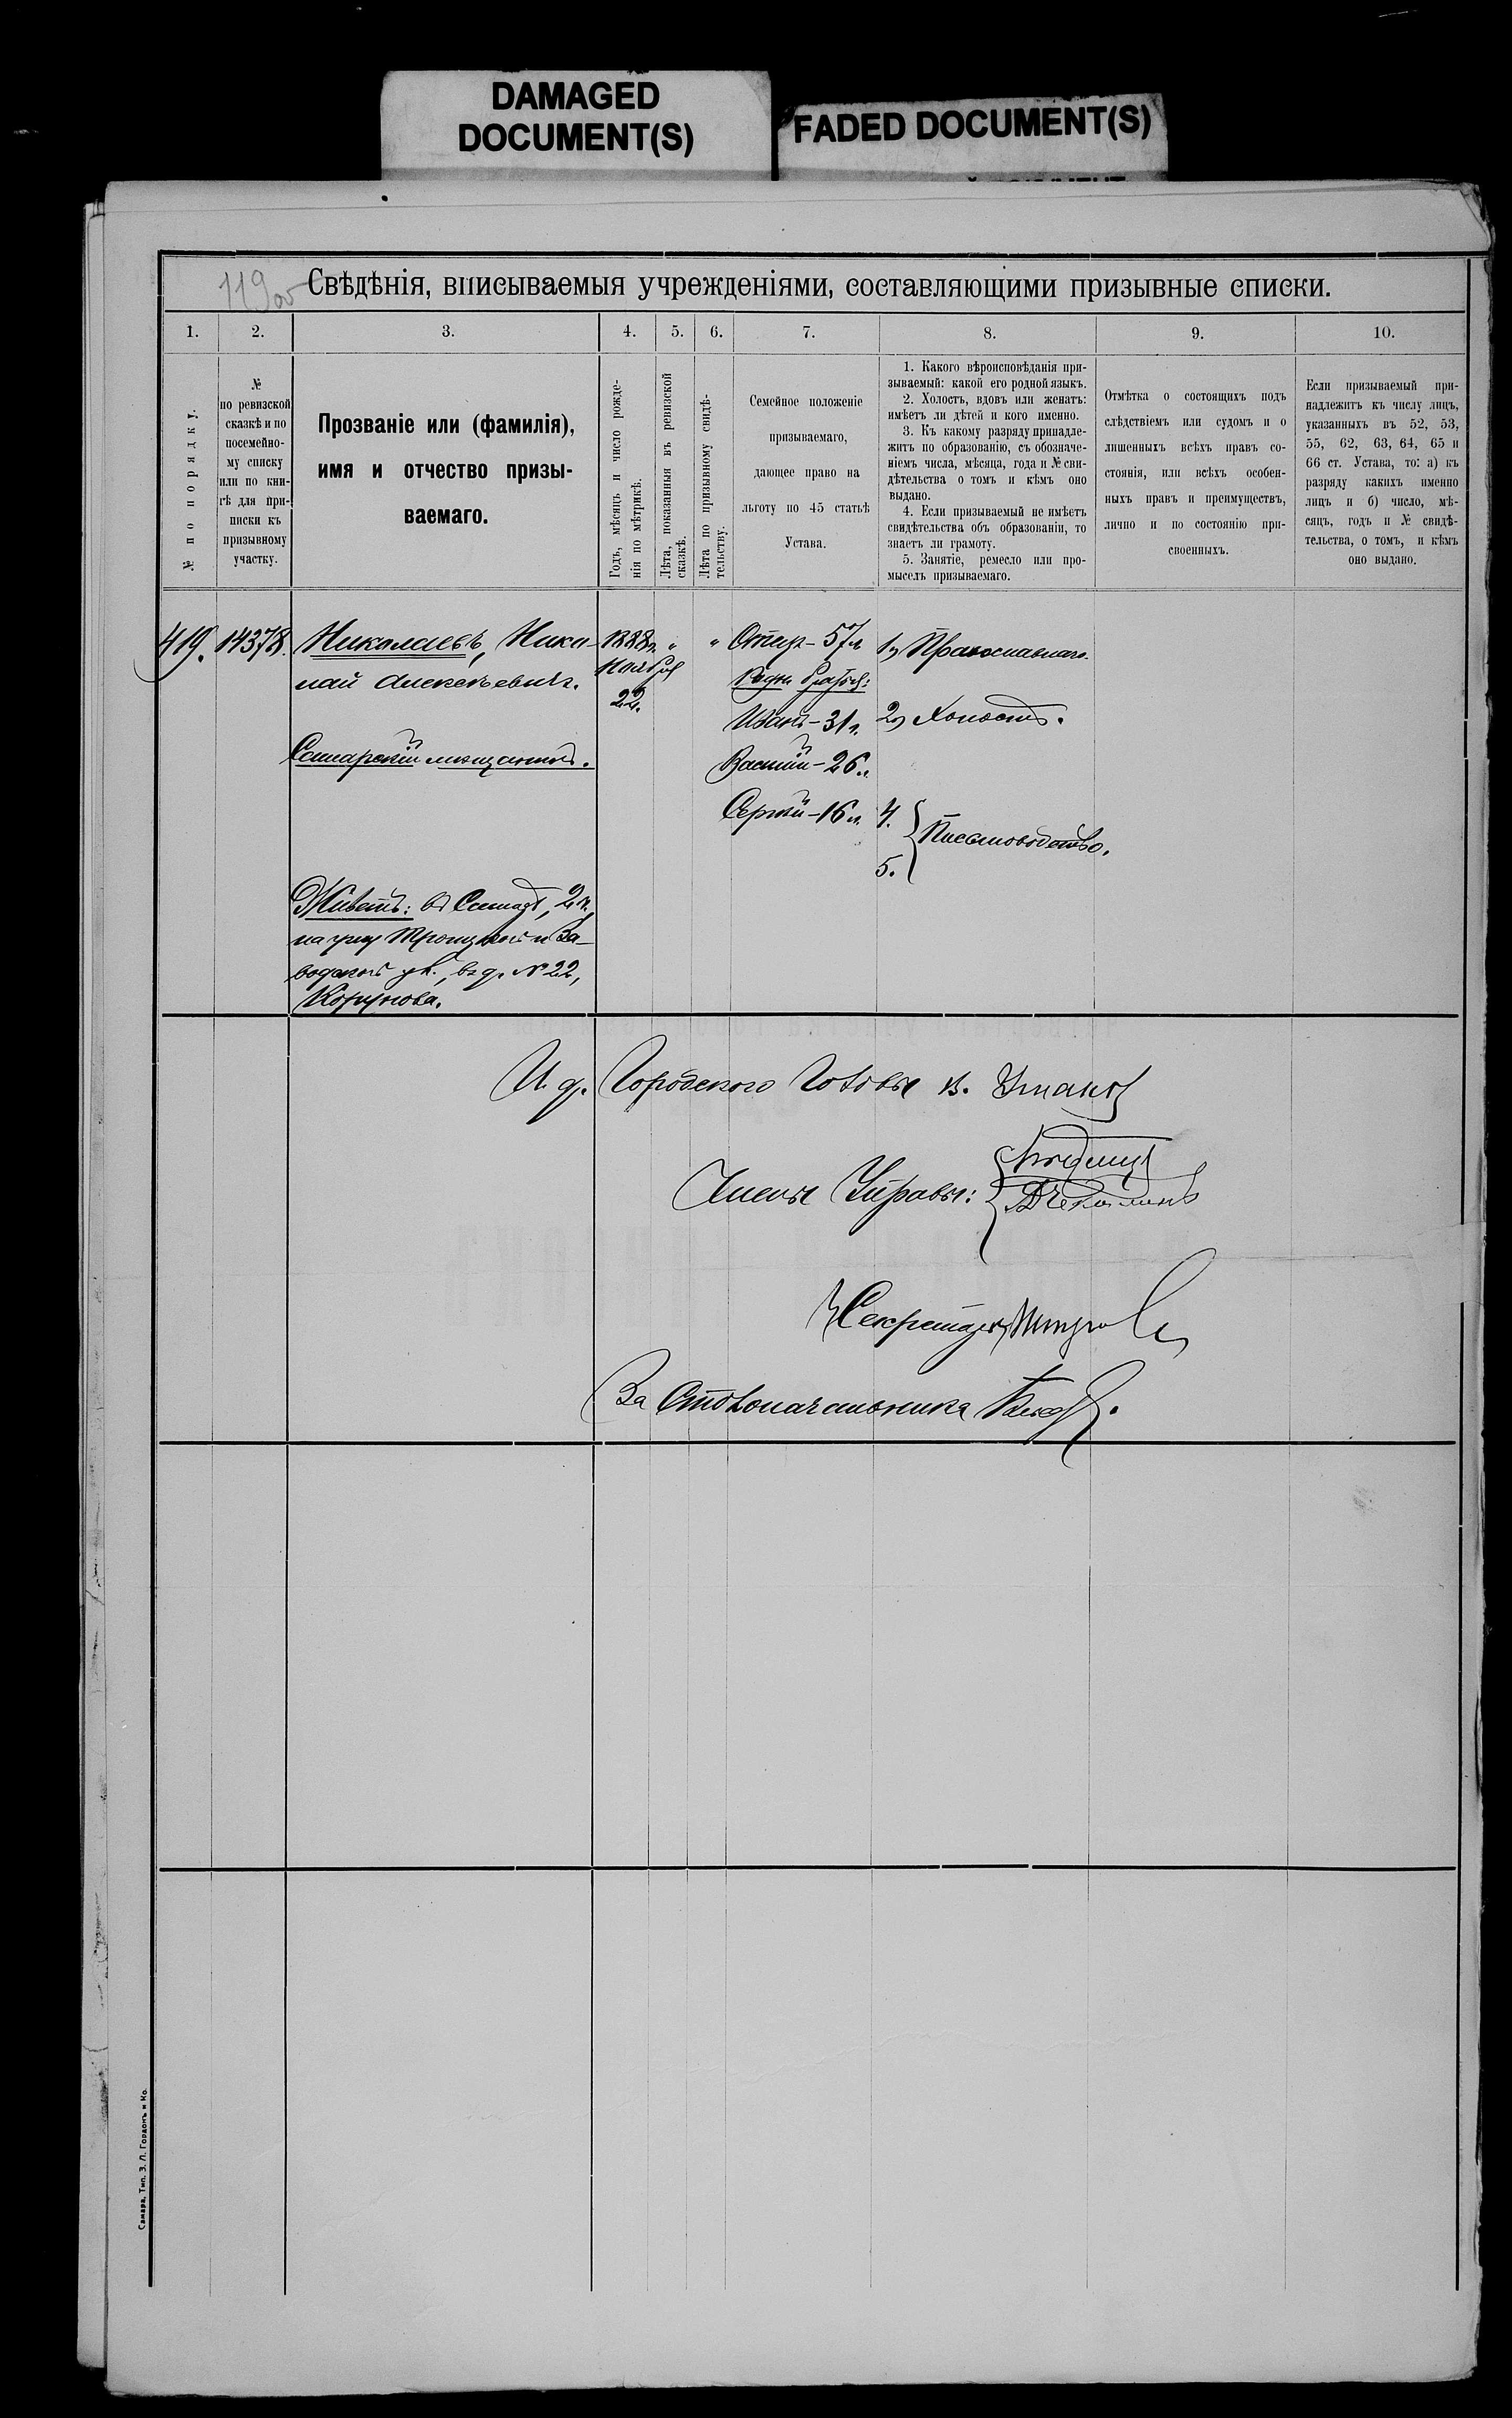 DAMAGED
DOCUMENT(S)
FADED DOCUMENT(S)
119об
Свѣдѣнія, вписываемыя учрежденіями, составляющими призывные списки.
1. 2. 3. 4. 5. 6. 7. 8. 9. 10.
№ по порядку.
№
по ревизской
сказкѣ и по
посемейно-
му списку
или по кни-
гѣ для при-
писки къ
призывному
участку.
Прозваніе или (фамилія),
имя и отчество призы-
ваемаго.
Годъ, мѣсяцъ и число рожде-
нія по мѣтрикѣ.
Лѣта, показанныя въ ревизской
сказкѣ.
Лѣта по призывному свидѣ-
тельству.
Семейное положеніе
призываемаго,
дающее право на
льготу по 45 статьѣ
Устава.
1. Какого вѣроисповѣданія при-
зываемый: какой его родной языкъ.
2. Холостъ, вдовъ или женатъ:
имѣетъ ли дѣтей и кого именно.
3. Къ какому разряду принадле-
житъ по образованію, съ обозначе-
ніемъ числа, мѣсяца, года и № сви-
дѣтельства о томъ и кѣмъ оно
выдано.
4. Если призываемый не имѣетъ
свидѣтельства объ образованіи, то
знаетъ ли грамоту.
5. Занятіе, ремесло или про-
мыселъ призываемаго.
Отмѣтка о состоящихъ подъ
слѣдствіемъ или судомъ и о
лишенныхъ всѣхъ правъ со-
стоянія, или всѣхъ особен-
ныхъ правъ и преимуществъ,
лично и по состоянію при-
своенныхъ.
Если призываемый при-
надлежитъ къ числу лицъ,
указанныхъ въ 52, 53,
55, 62, 63, 64, 65 и
66 ст. Устава, то: а) къ
разряду какихъ именно
лицъ и б) число, мѣ-
сяцъ, годъ и № свидѣ-
тельства, о томъ, и кѣмъ
оно выдано.
419.
14378.
Николаевъ, Нико-
лай Алексѣевичъ.
Самарскій мѣщанинъ.
Живетъ: въ Самарѣ, 2 ч.,
на углу Троицкой и За-
водской ул., въ д. № 22,
1888 г.
Ноября
22.
"
"
Отецъ - 57 л.
Родн. братья:
Иванъ - 31 г.
Василій - 26 л.
Сергѣй - 16 л.
1) Православнаго.
2) Холостъ.
4.
5.
Письмоводство.
И. д. Городского Головы В.
Члены Управы:
Секретарь
За Столоначальника
Самара, Тип. З. Л. Гордонъ и Ко.